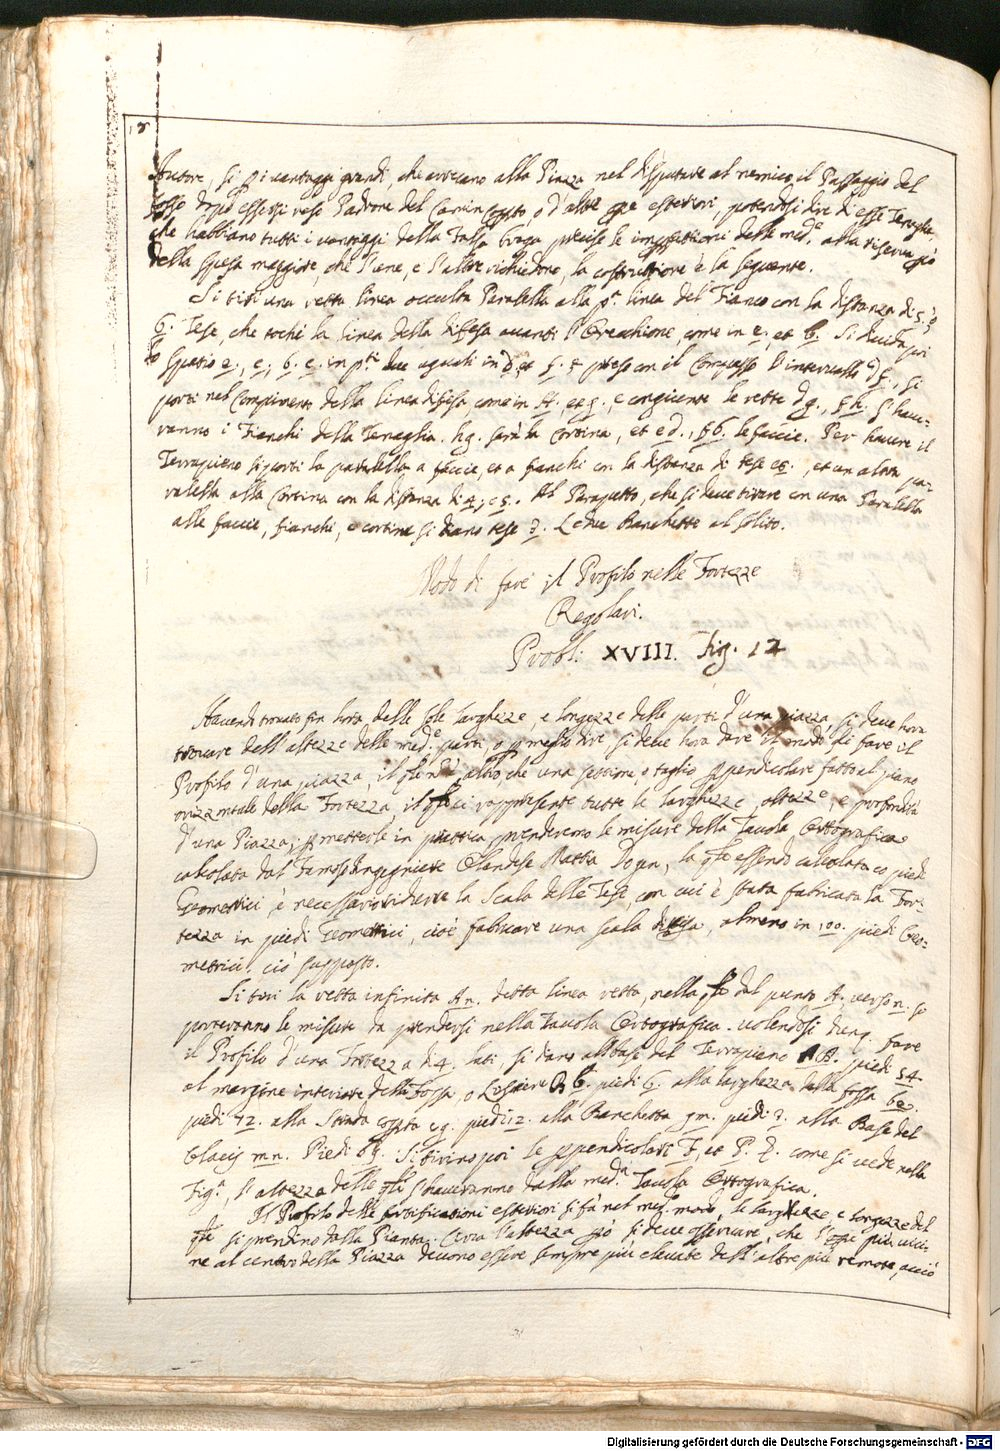 18
Autore, si p i vantaggi grandi, che arrecano alla Piazza nel disputare al nemico il Passaggio del
fosso dopo essersi reso Padrone del Camin Coperto, o d'altre opre esteriori, potendosi dire di esse Tenaglie
che habbiano tutti i vantaggi della Falsa braga precise le imperfettioni delle med.e alla riserva però
della spesa maggiore, che l'une, e l'altre richiedono, la costruttione è la seguente.
Si tiri una retta linea occulta Paralella alla p.a linea del Fianco con la distanza di 5. o
6. Tese, che tochi la linea della difesa avanti l'Erecthione, come in e, et b. Si divida poi
lo spatio e, c; b. c. in p.ti due uguali in d, et f. e preso con il Compasso l'intervallo d f., si
porti nel Compimento della linea difesa, come in H. et g., e congiunte le rette d g., f h. s'have-
ranno i Fianchi della Tenaglia. hg. sarà la Cortina, et e d., f b. le faccie. Per havere il
Terrapieno si porti la paralella a faccie, et a fianchi con la distanza di tese e un altra pa-
ralella alla Cortina con la distanza di 4, e 5. Al Parapetto, che si deve tirare con una Paralella
alle faccie, fianchi, e cortina si diano tese 3. Le due Banchette al solito.
Modo di fare il Profilo nelle Fortezze
Regolari.
Probl: XVIII. Fig. 12
Havendo trovato sin hora delle sole larghezze, e longezze delle parti d'una piazza, si deve hora
trovare dell'altezze delle med.e parti, o p meglio dire si deve hora dare il modo di fare il
Profilo d'una piazza, il qle n è altro, che una settione, o taglio ppendicolare fatto al piano
orizzontale della Fortezza, il qle ci rappresente tutte le larghezze, altezze, e profondità
d'una Piazza; p metterle in prattica prenderemo le misure della Tavola Ortografica
calcolata dal Famoso Ingegniere Olandese Mattia Dogen, la qle essendo calcolata co piedi
Geometrici è necessario ridurre la Scala delle Tese, con cui è stata fabricata la For-
tezza in piedi Geometrici, cioè fabricare una scala divisa, almeno in 100. piedi Geo-
metrici. ciò supposto.
Si tiri la retta infinita A n. detta linea retta, nella qle dal punto A. verso n. si
porteranno le misure da prendersi nella Tavola Ortografica. volendosi dunq. fare
il Profilo d'una Fortezza di 4. lati, si dano alla base del Terrapieno AB. piedi 54.
al margine interiore della Fossa, o Lisiere B b. piedi 6. alla larghezza della fossa be.
piedi 72. alla Strada coperta eg. piedi 12. alla Banchetta gm. piedi 3. alla Base del
Glacis mn. Piedi 65. Si tirino poi le ppendicolari F, et P. Q. come si vede nella
Fig.a, l'altezza delle qli s'haveranno dalla med.a Tavola Ortografica.
Il Profilo delle fortificationi esteriori si fa nel med. modo, le larghezze e longezze del
qle si prendino dalla Pianta. Circa l'altezza però si deve osservare, che l'opre più vici-
ne al centro della Piazza devono essere sempre più elevate dell'altre più remote, acciò
Digitalisierung gefördert durch die Deutsche Forschungsgemeinschaft - DFG